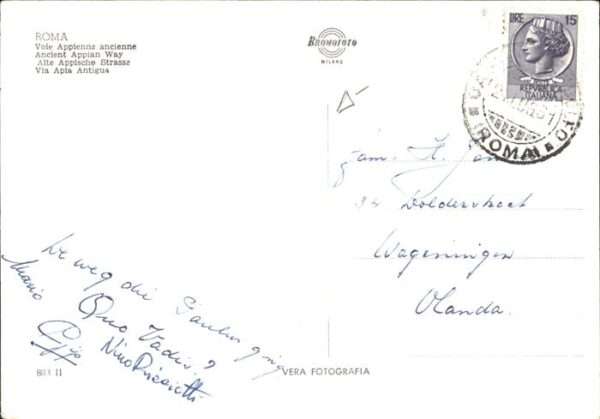 ROMA
Voie Appienne ancienne
Ancient Appian Way
Alte Appische Strasse
Via Apia Antigua
Bromofoto
MILANO
LIRE 15
REPVBBLICA
ITALIANA
(ROMA)
Fam. H. Jan
34 Dolderstraat
Wageningen
Olanda.
De weg die Paulus ging
Quo Vadis?
Mario
Nino Ricciotti
881 II
VERA FOTOGRAFIA